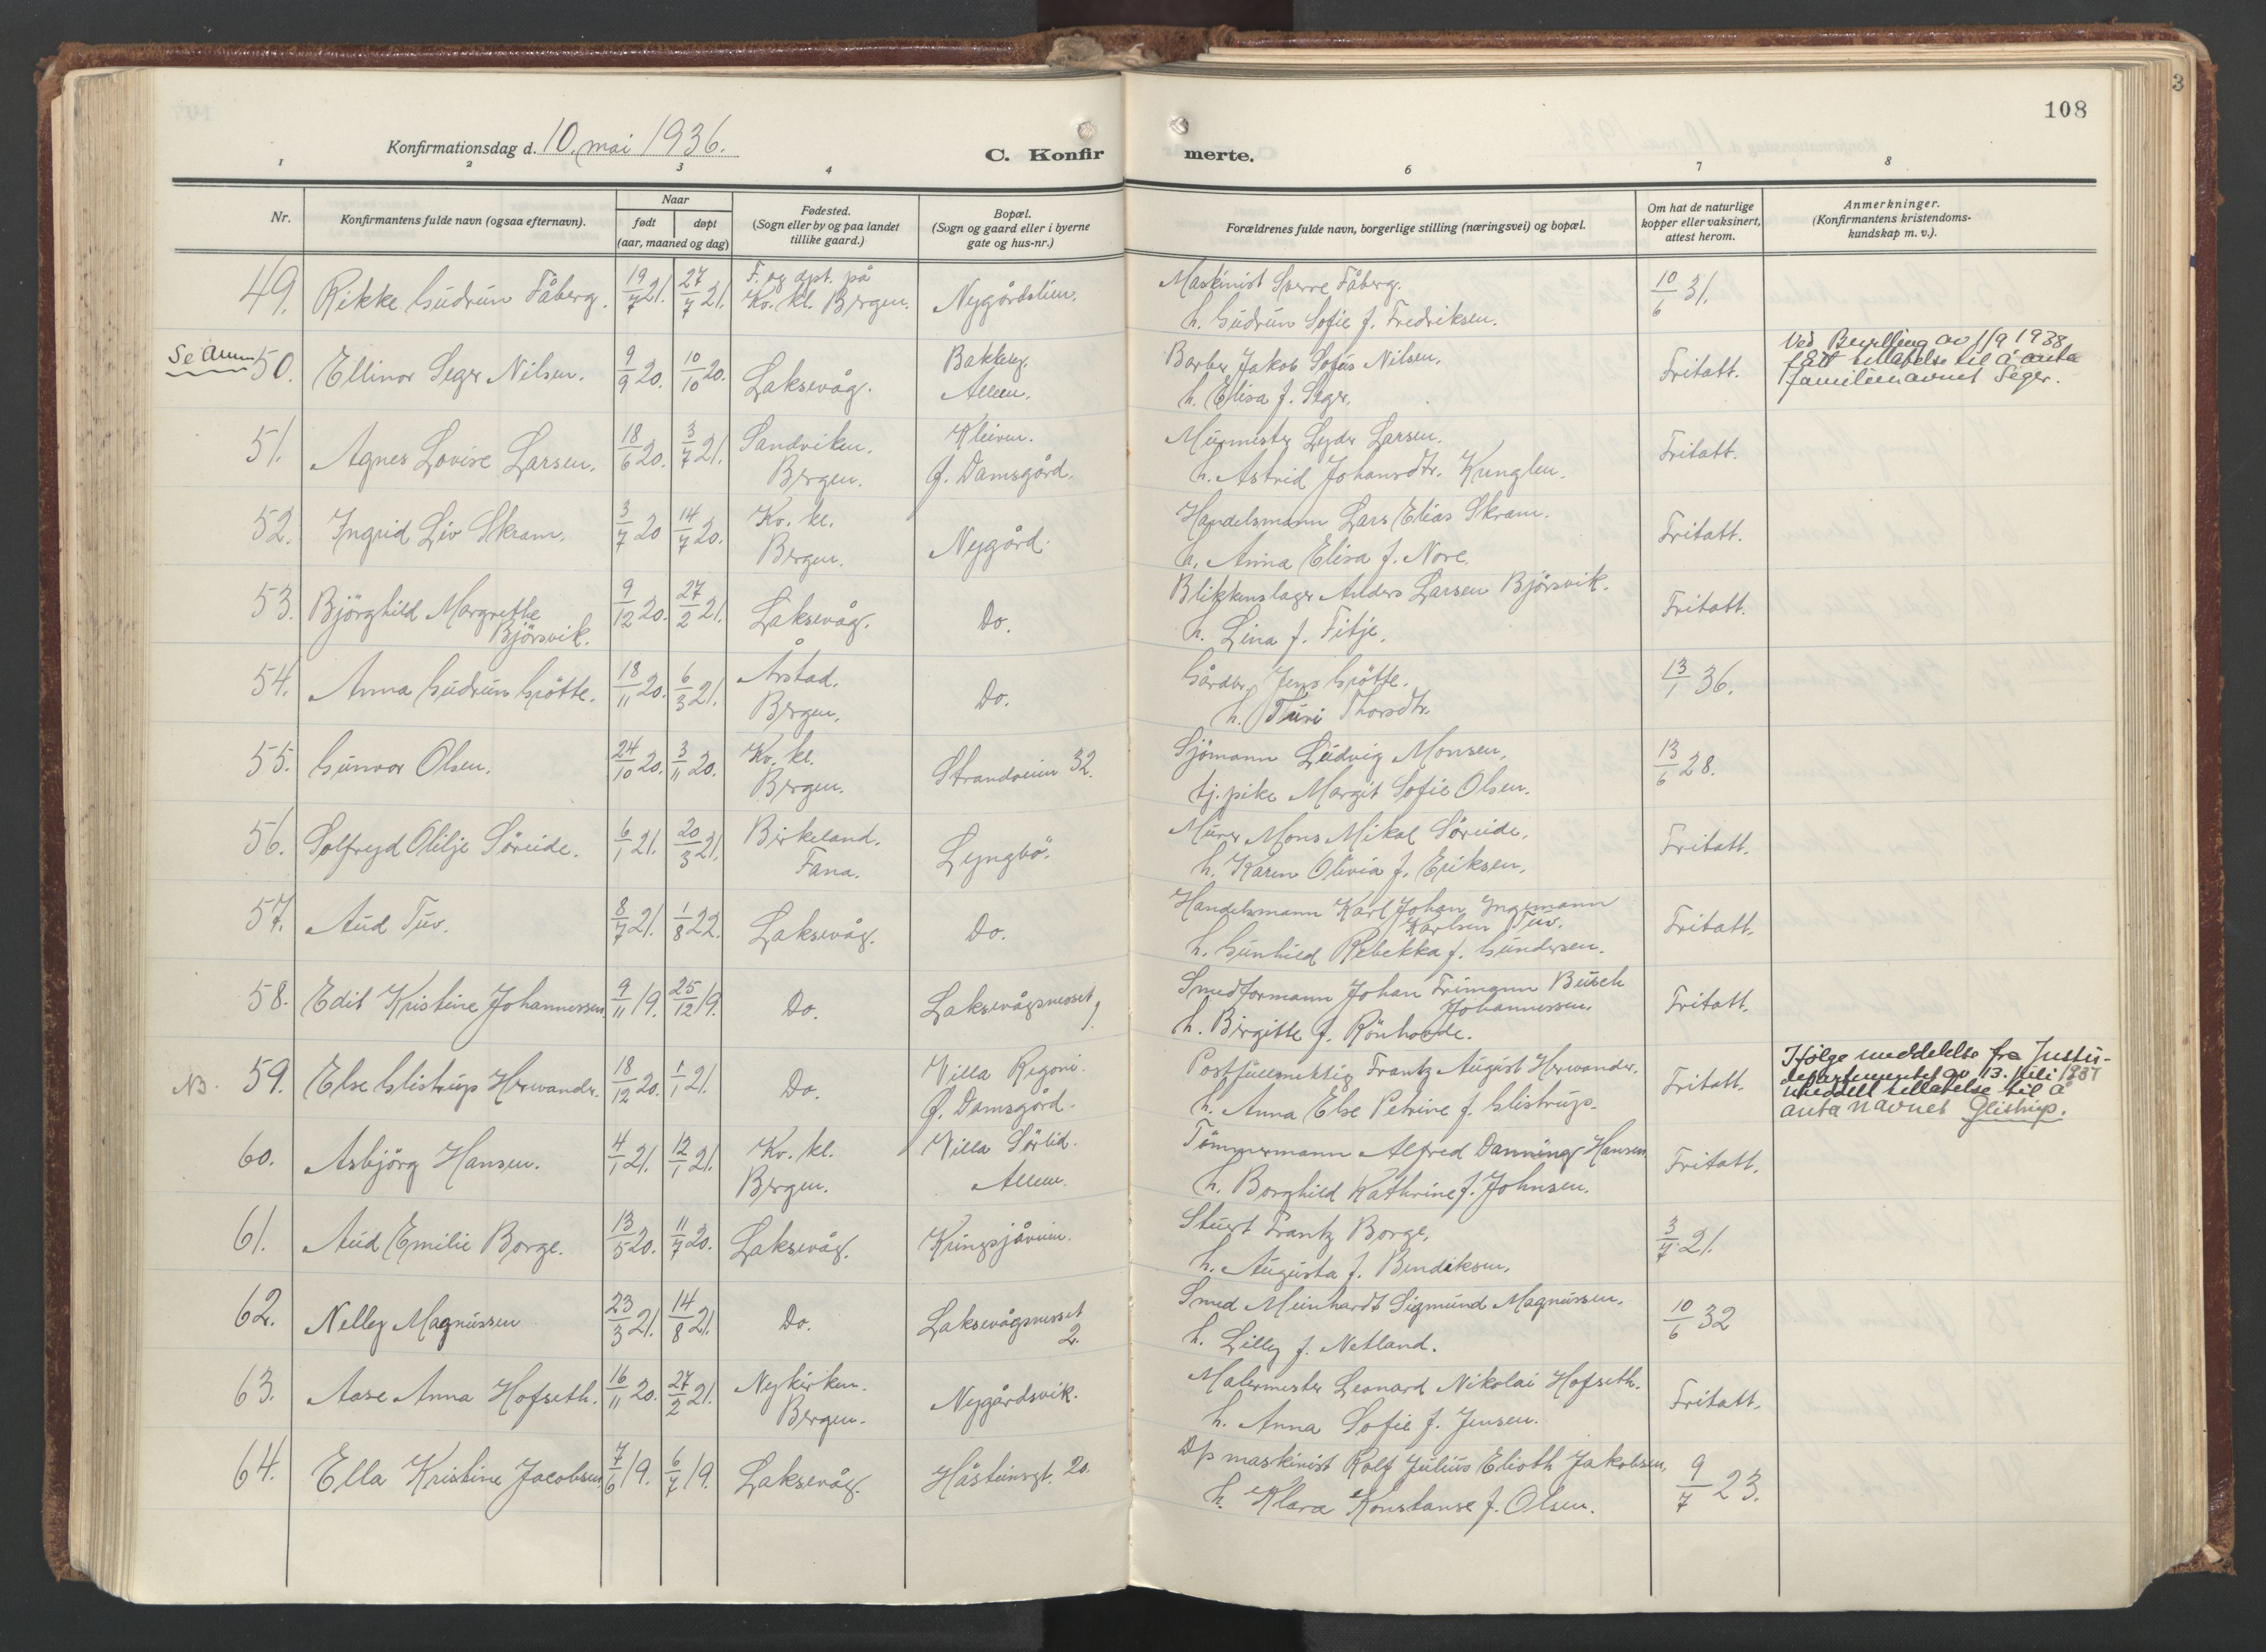 108
3
Konfirmationsdag d. 10. mai 1936.
C. Konfirmerte.
1 2 3 4 6 7 8
Nr.
Konfirmantens fulde navn (ogsaa efternavn).
Naar
født
døpt
(aar, maaned og dag)
Fødested.
(Sogn eller by og paa landet
tillike gaard.)
Bopæl.
(Sogn og gaard eller i byerne
gate og hus-nr.)
Forældrenes fulde navn, borgerlige stilling (næringsvei) og bopæl.
Om hat de naturlige
kopper eller vaksinert,
attest herom.
Anmerkninger.
(Konfirmantens kristendoms-
kundskap m. v.).
49. Rikke Gudrun Fåberg. 19/7 21. 27/7 21. F. og dpt. på
Kv. kl. Bergen. Nygårdslien.
Maskinist Sverre Fåberg.
h. Gudrun Sofie f. Fredriksen.
10/6 31.
Se Anm
50. Ellinor Seger Nilsen. 9/9 20. 10/10 20. Laksevåg. Bakkeg.
Alleen.
Barber Jakob Sofus Nilsen.
h. Elisa f. Seger.
Fritatt.
Ved Bevilling av 1/9 1938
fått tillatelse til å anta
familienavnet Seger.
51. Agnes Lovise Larsen. 18/6 20. 3/7 21. Sandviken.
Bergen. Kleiven.
G. Damsgård.
Murmester Lyder Larsen.
h. Astrid Johansdtr. Kunglen.
Fritatt.
52. Ingrid Liv Skram. 3/7 20 14/7 20. Kv. kl.
Bergen. Nygård.
Handelsmann Lars Elias Skram.
h. Anna Elisa f. Nore.
Fritatt.
53. Björghild Margrethe
Björsvik. 9/12 20. 27/2 21. Laksevåg. Do.
Blikkenslager Anders Larsen Björsvik.
h. Lina f. Fitje.
Fritatt.
54. Anna Gudrun Grötte. 18/11 20. 6/3 21. Årstad.
Bergen. Do.
Gårdbr. Jens Grötte.
h. Turi Thorsdtr.
13/1 36.
55. Gunvor Olsen. 24/10 20. 3/11 20. Kv. kl.
Bergen. Strandveien 32.
Sjömann Ludvig Monsen,
tj. pike Margit Sofie Olsen.
13/6 28.
56. Solfryd Olilje Söreide. 6/1 21. 20/3 21. Birkeland.
Fana. Lyngbö.
Murer Mons Mikal Söreide,
h. Karen Olivia f. Eriksen.
Fritatt.
57. Aud Tuv. 8/7 21. 1/8 22. Laksevåg. Do.
Handelsmann Karl Johan Ingemann
Karlsen Tuv.
h. Gunhild Rebekka f. Gundersen.
Fritatt.
58. Edit Kristine Johannessen. 9/11 19. 25/12 19. Do. Laksevågsnesset
1.
Smedformann Johan Frimann Busch
Johannessen.
h. Birgitte f. Rönhovde.
Fritatt.
NB. 59. Else Glistrup Herwander. 18/12 20. 1/1 21. Do. Villa Rigoni.
G. Damsgård.
Postfullmektig Frantz August Herwander.
h. Anna Else Petrine f. Glistrup.
Fritatt.
Ifölge meddelelse fra Justis-
departementet av 13. juli 1937
meddelt tillatelse til å
anta navnet Glistrup.
60. Asbjörg Hansen. 4/1 21. 12/1 21. Kv. kl.
Bergen. Villa Sörlid.
Alleen.
Tömmermann Alfred Danning Hansen
h. Borghild Kathrine f. Johnsen.
Fritatt.
61. Aud Emilie Borge. 13/5 20. 11/7 20. Laksevåg. Kringsjåveien.
Stuert Frantz Borge,
h. Augusta f. Bendiksen.
3/7 21.
62. Nelley Magnussen 23/3 21. 14/8 21. Do. Laksevågsnesset
2.
Smed Meinhardt Sigmund Magnussen,
h. Lilley f. Netland.
10/6 32
63. Aase Anna Hofseth. 16/11 20. 27/2 21. Nykirken.
Bergen. Nygårdsvik.
Malermester Leonard Nikolai Hofseth.
h. Anna Sofie f. Jensen.
Fritatt.
64. Ella Kristine Jacobsen. 7/6 19. 6/7 19. Laksevåg. Håsteinsgt. 20.
Dp maskinist Rolf Julius Elioth Jakobsen,
h. Klara Konstanse f. Olsen.
9/7 23.